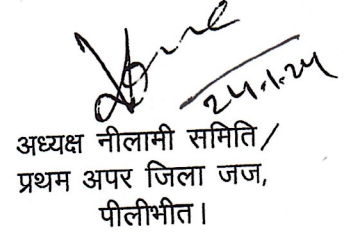 24.1.24
अध्यक्ष नीलामी समिति/
प्रथम अपर जिला जज,
पीलीभीत।